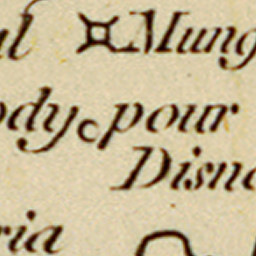 al ¤Mung
ody c pour
Disna
ria